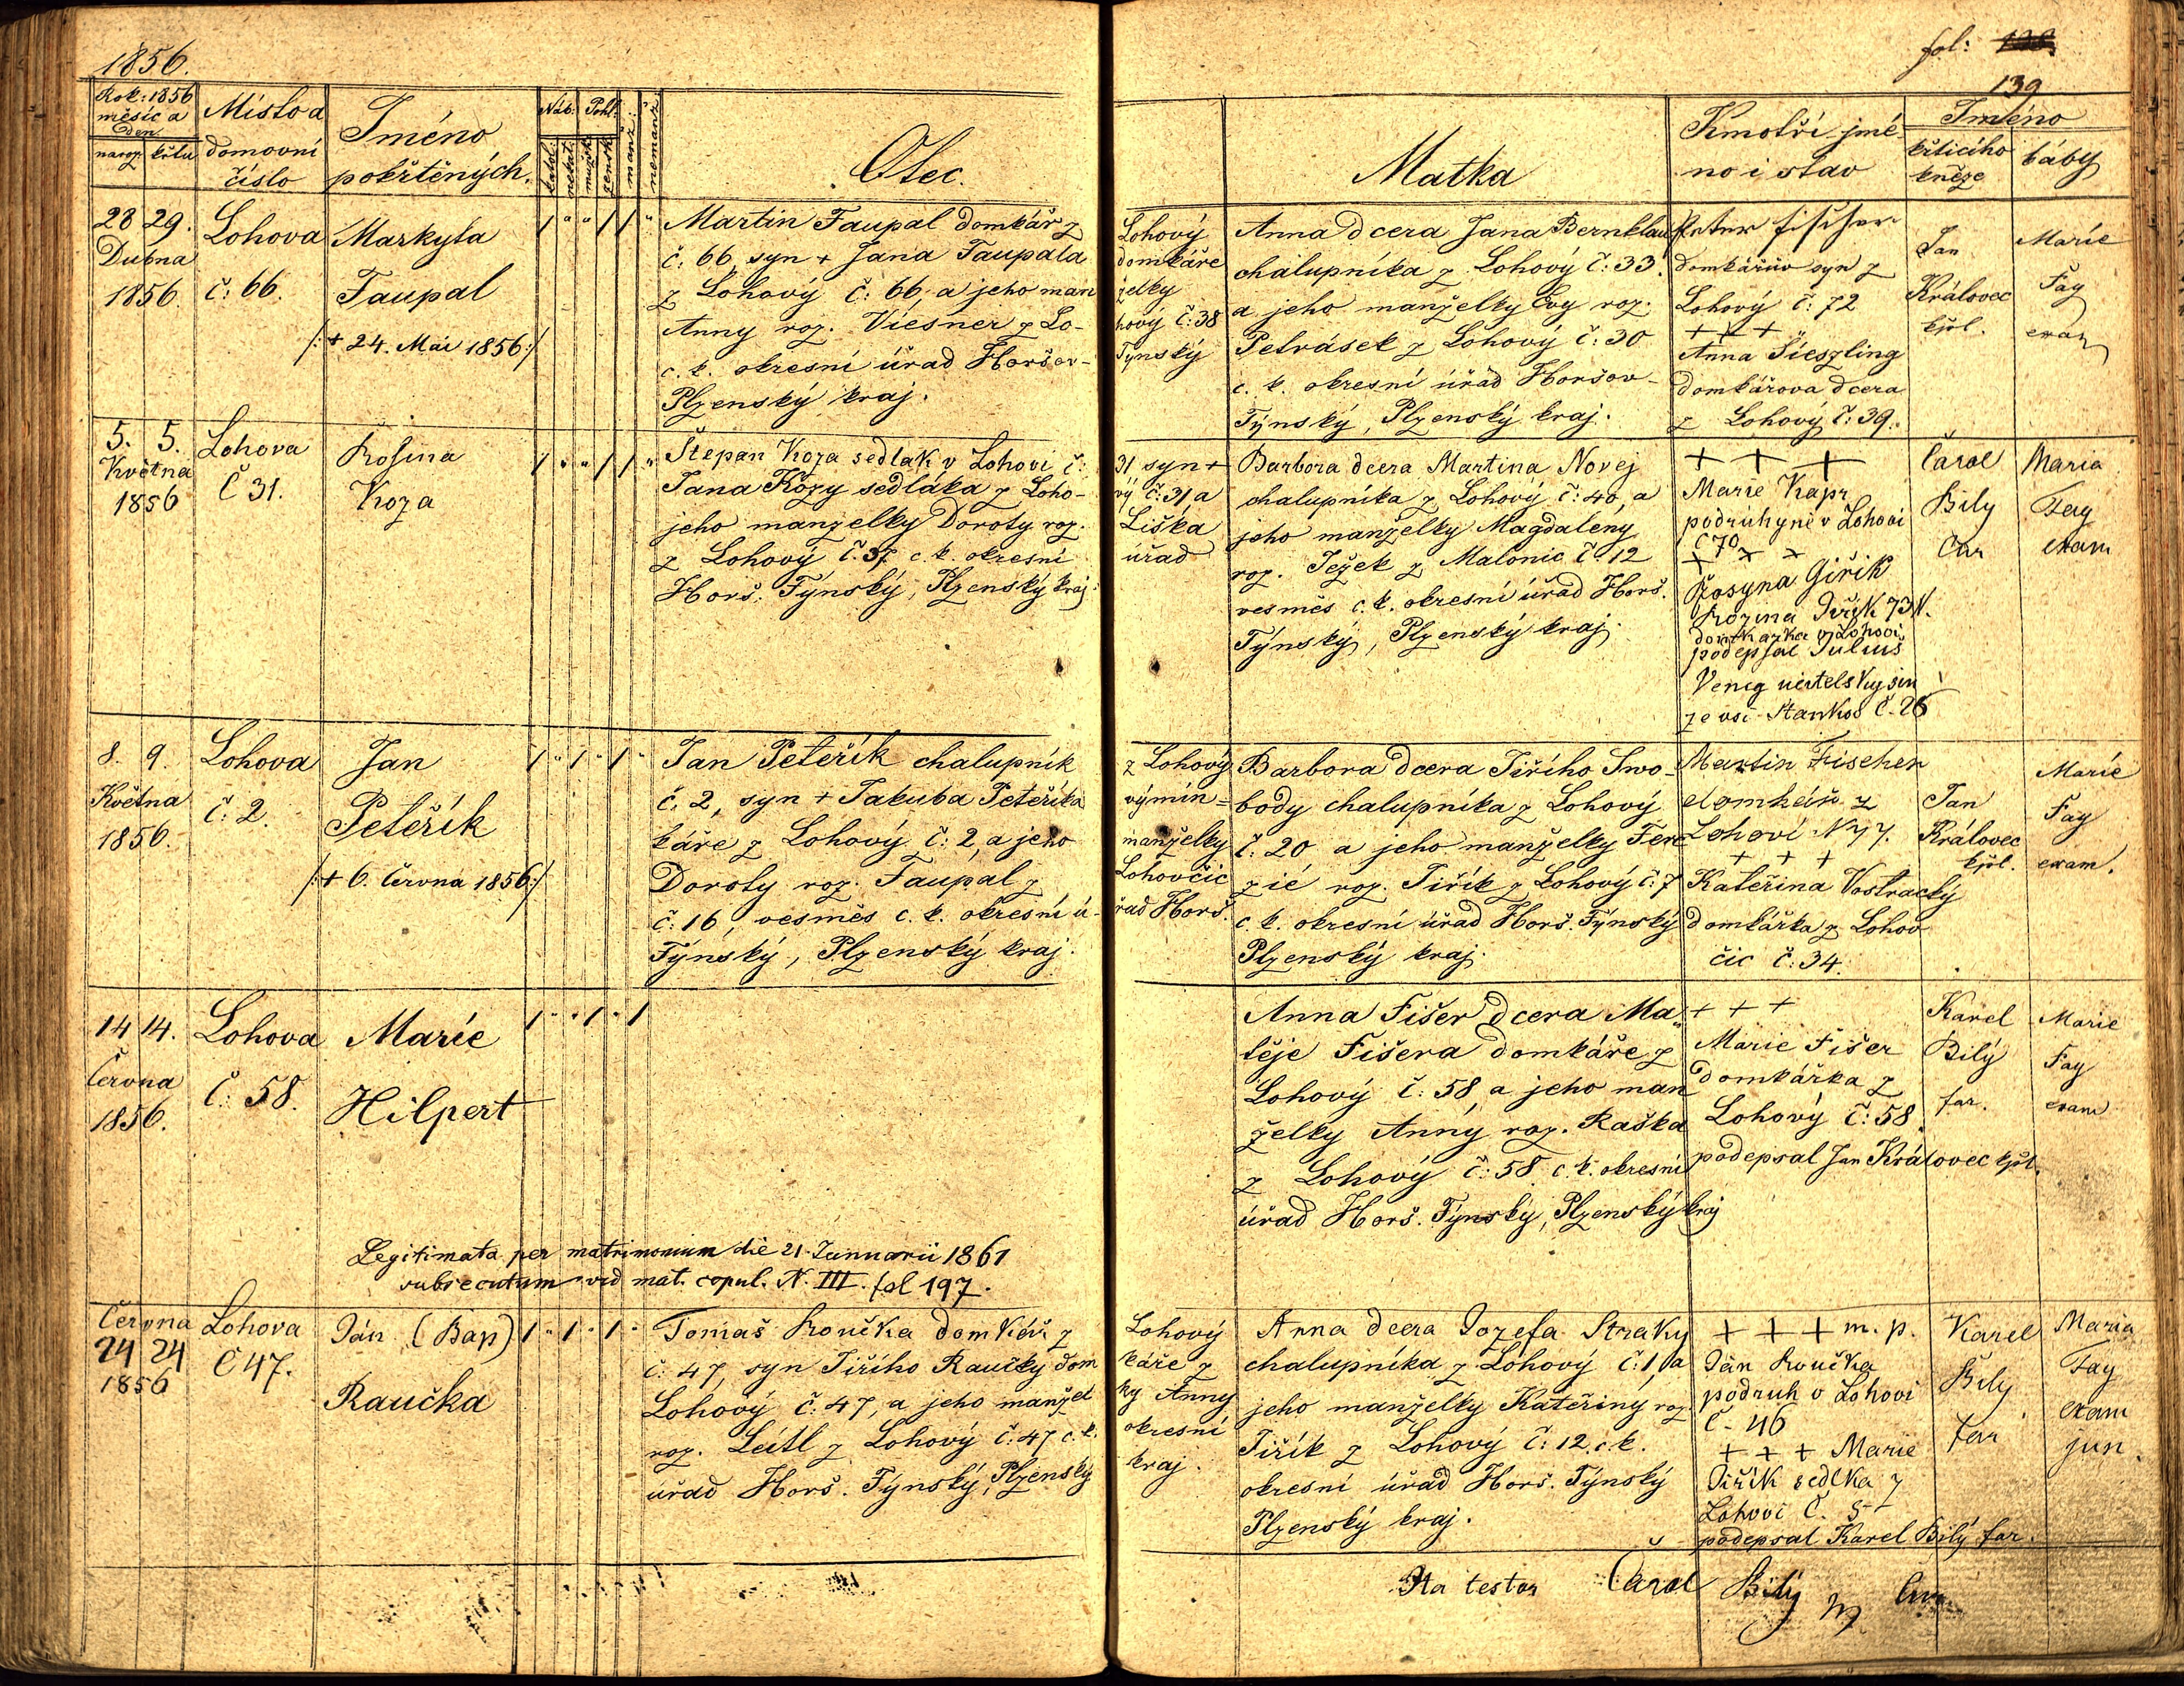 1856.
fol: 138.
139
Rok: 1856
měsíc a
den
naroz. křtu
Místo a
domovní
číslo
Jméno
pokřtěných.
Náb: Pohl:
katol: nekat: mužsk: žensk: manž: nemanž:
Otec.
Matka
Kmotři jmé-
no i stav
Jméno
křticího
kněze
báby
28 29.
Dubna
1856.
Lohova
č: 66.
Markyta
Taupal
/:+ 24. Mai 1856:/
1 " " 1 1 "
Martin Taupal domkář z Lohový
č: 66, syn + Jana Taupala domkáře
z Lohový č: 66, a jeho man želky
Anny roz. Viesner z Lo- hový č: 38
c. k. okresní úřad Horšov- Týnský
Plzenský kraj.
Anna dcera Jana Bernklau
chalupníka z Lohový č: 33.
a jeho manželky Evy roz.
Petrásek z Lohový č: 30
c. k. okresní úřad Horšov-
Týnský, Plzenský kraj.
Peter Fischer
domkářův syn z
Lohový č: 72
+ + +
Anna Šieszling
domkářova dcera
z Lohový č: 39.
Jan
Královec
kpl.
Marie
Fay
exam
5. 5.
Května
1856
Lohova
Č 31.
Rosina
Koza
1 " " 1 1 "
Štepan Koza sedlak v Lohovi č: 31 syn +
Jana Kozy sedláka z Loho- vý č: 31 a
jeho manzelky Doroty roz. Liška
z Lohový č. 37 c. k. okresní úřad
Horš. Týnský, Plzenský kraj.
Barbora dcera Martina Novej
chalupníka z Lohový č: 40, a
jeho manželky Magdaleny
roz. Ježek z Malonic č: 12
vesměs c. k. okresní úřad Horš.
Týnský, Plzenský kraj.
+ + +
Marie Kapr
podruhyně v Lohovi
č 70
+ + +
Rosyna Giřik
Rozina Jiřík 73 N.
domkarka v Lohovi
podepsal Julius
Venig učitelsky sin
ze vsi Stankov č. 26
Carol
Bily
Cur
Maria
Fay
exam
8. 9.
Května
1856.
Lohova
č: 2.
Jan
Peteřík
/:+ 6. Června 1856:/
1 " 1 " 1 "
Jan Peteřík chalupník z Lohový
č: 2, syn + Jakuba Peteříka výmin=
káře z Lohový č: 2, a jeho manželky
Doroty roz. Taupal z Lohovčic
č: 16, vesměs c. k. okresní ú- řad Horš.
Týnský, Plzenský kraj.
Barbora dcera Jiřího Swo-
body chalupníka z Lohový
č: 20 a jeho manželky Tere
zié roz. Jiřík z Lohový č: 7
c. k. okresní úřad Horš. Týnský
Plzenský kraj.
Martin Fischer
domkář z
Lohoví N 77.
+ + +
Kateřina Vostracký
domkářka z Lohov
čic č: 34.
Jan
Královec
kpl.
Marie
Fay
exam.
14 14.
Června
1856.
Lohova
č: 58.
Marie
Hilpert
1 " " 1 " 1
Anna Fišer dcera Ma-
těje Fišera domkáře z
Lohový č: 58, a jeho man
želky Anný roz. Raška
z Lohový č: 58. c. k. okresní
úřad Horš. Týnsky, Plzenský kraj
+ + +
Marie Fišer
domkářka z
Lohový č: 58.
podepsal Jan Královec kpl.
Karel
Bilý
far.
Marie
Fay
exam
Legitimata per matrimonium die 21. Januarii 1861
subsecutum vid mat. copul. N. III. fol 197.
Června
24 24
1856
Lohova
č 47.
Ján (Bap)
Raučka
1 " 1 " 1 "
Tomaš Roučka domkář z Lohový
č: 47, syn Jiřího Raučky dom káře z
Lohový č: 47, a jeho manžel ky Anny
roz. Leitl z Lohový č: 47 c. k. okresní
úřad Horš. Týnský, Plzenský kraj.
Anna dcera Jozefa Straky
chalupníka z Lohový č: 1, a
jeho manželky Kateřiný roz.
Jiřík z Lohový č: 12. c. k.
okresní úřad Horš. Týnský
Plzenský kraj.
+ + + m. p.
Ján Roučka
podruh v Lohovi
č. 46
+ + + Marie
Jiřík sedlka z
Lohovi Č. 5
podepsal Karel Bilý far.
Karel
Bily
far
Maria
Fay
exam
jun.
Ita testor Carol Bilý